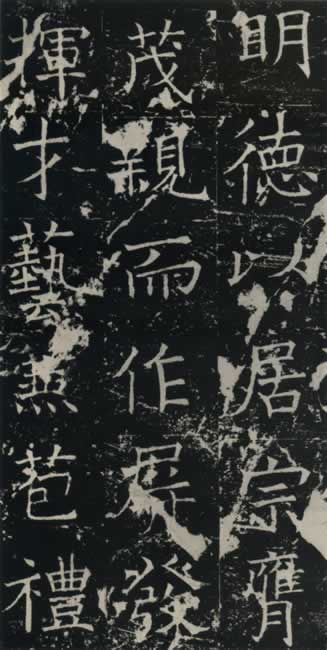 明德以居宗膺
茂親而作屏發
揮才藝兼苞禮